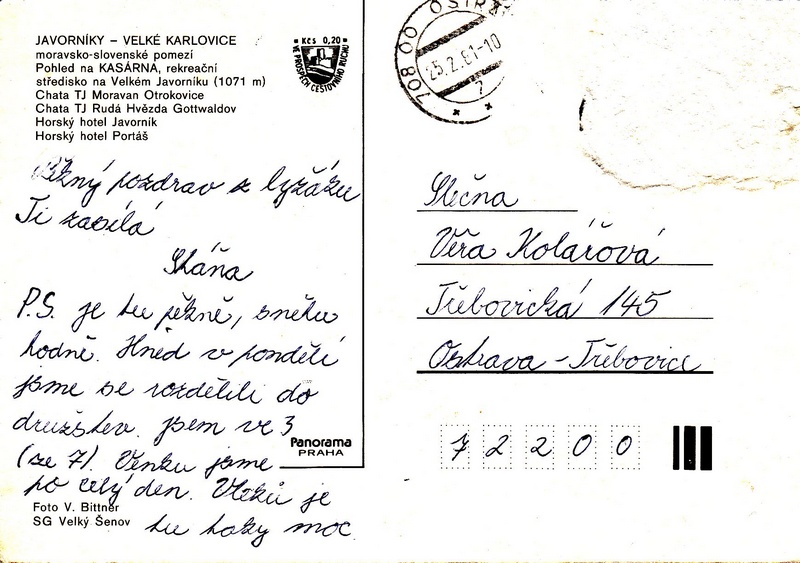 JAVORNÍKY – VELKÉ KARLOVICE
moravsko-slovenské pomezí
Pohled na KASÁRNA, rekreační
středisko na Velkém Javorníku (1071 m)
Chata TJ Moravan Otrokovice
Chata TJ Rudá Hvězda Gottwaldov
Horský hotel Javorník
Horský hotel Portáš
Kčs 0,20
VE PROSPĚCH CESTOVNÍHO RUCHU
708 00 OSTRA
25.2.81-10
z
Něžný pozdrav z lyžáku
Ti zasílá
Stáňa
P.S. je tu pěkně, sněhu
hodně. Hned v pondělí
jsme se rozdělili do
družstev. jsem ve 3
(ze 7). Venku jsme
po celý den. Vleků je
tu taky moc
Panorama
PRAHA
Foto V. Bittner
SG Velký Šenov
Slečna
Věra Kolářová
Třebovická 145
Ostrava - Třebovice
7 2 2 0 0